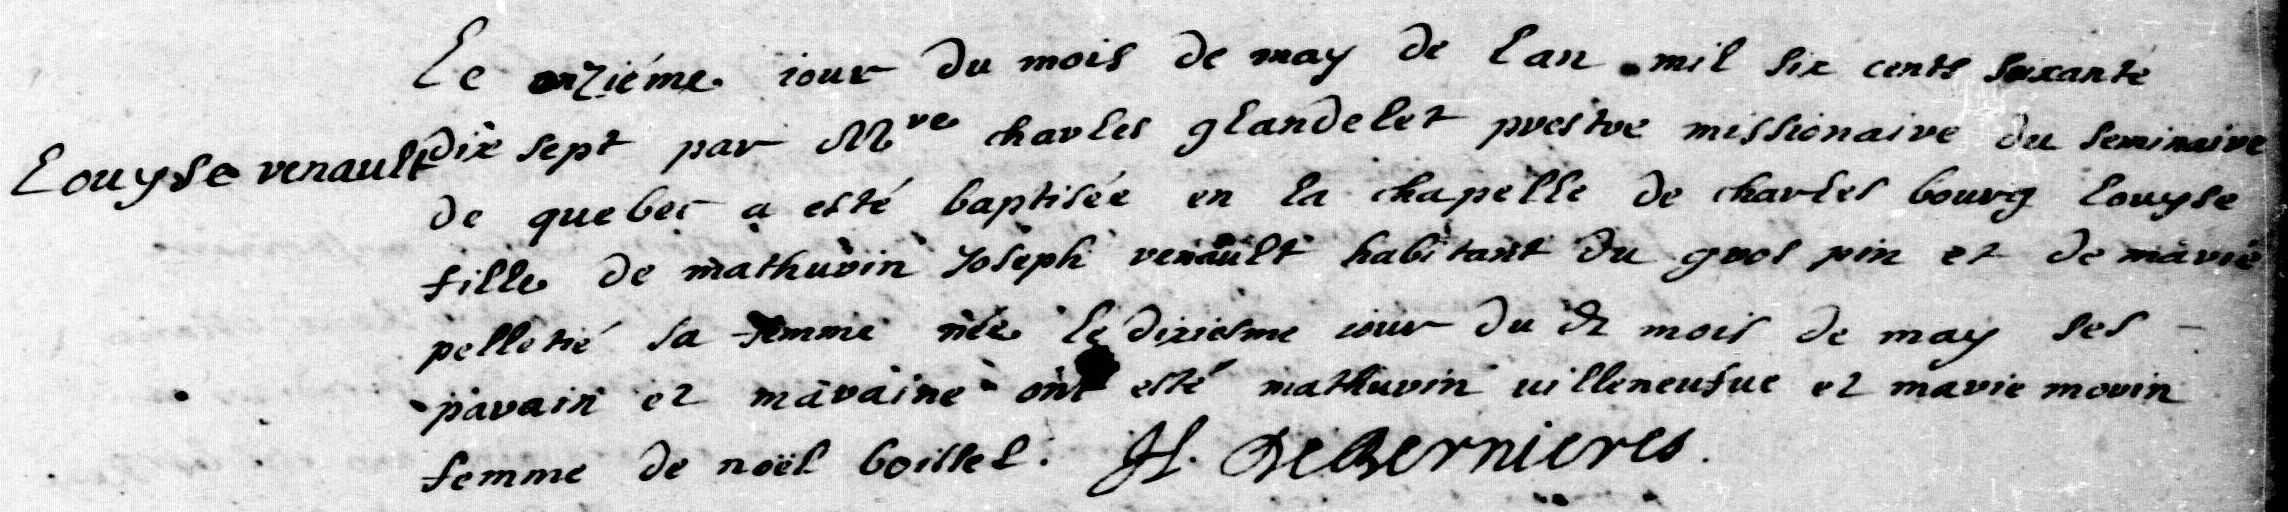 Le onziéme iour du mois de may de Lan mil six cents soixante
Louyse renault
dix sept par Mre charles glandelet prestre missionaire du seminaire
de quebec a esté baptisée en la chapelle de charles bourg Louyse
fille de mathurin Joseph renault habitant du gros pin et de marie
pelletié sa femme née le dixiesme iour du dt mois de may ses
parain et maraine ont esté mathurin uilleneufue et marie morin
femme de noël boissel. H. DeBernieres.